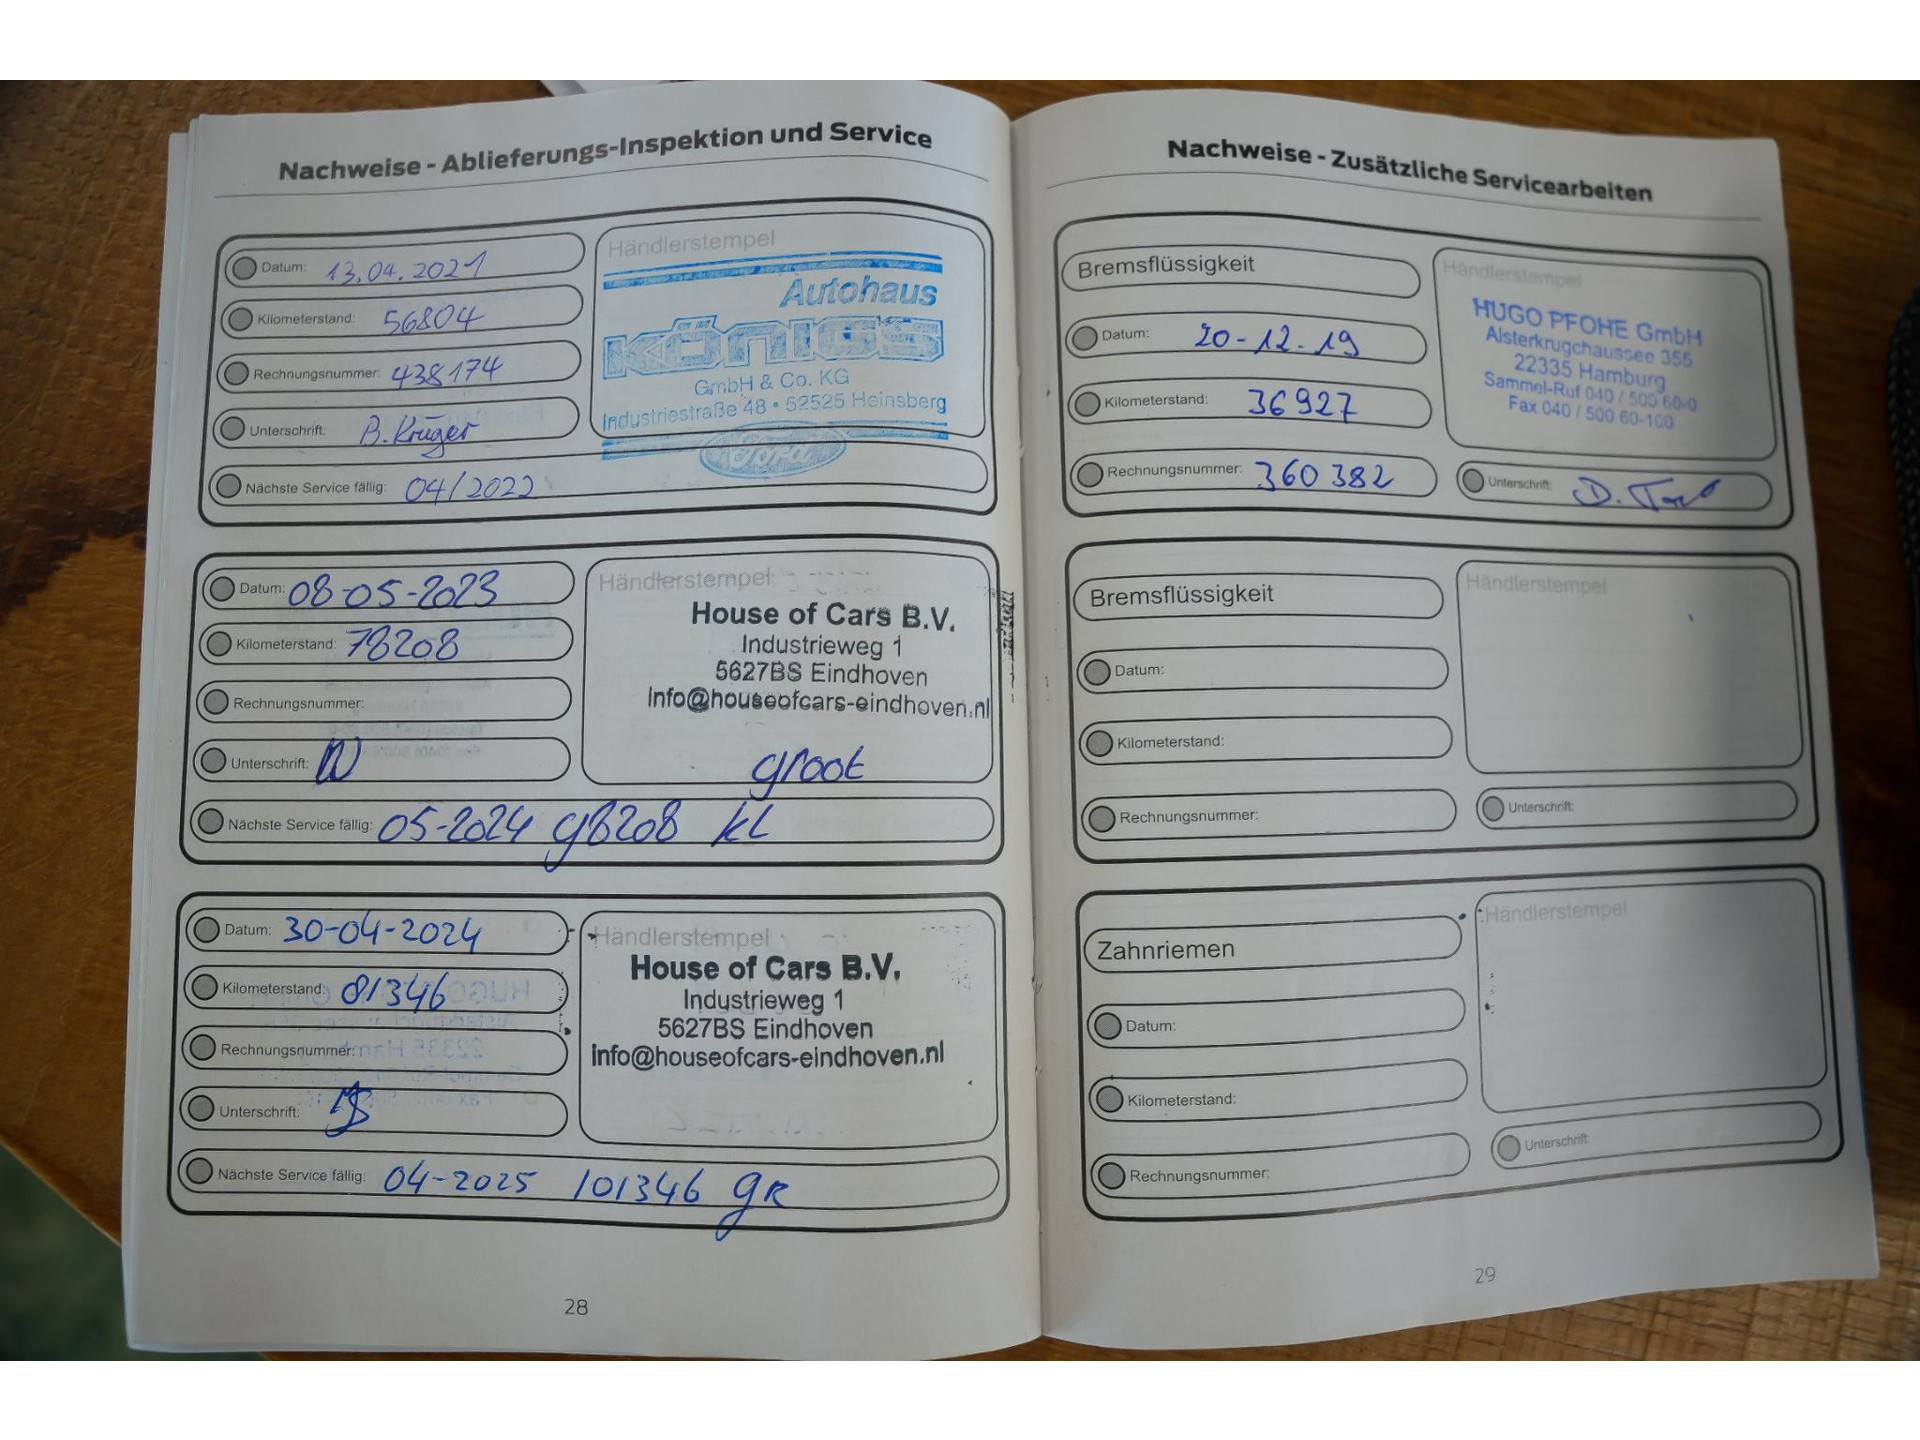 Nachweise - Ablieferungs-Inspektion und Service
Datum: 13.04.2021
Kilometerstand: 56804
Rechnungsnummer: 438174
Unterschrift: B. Krüger
Nächste Service fällig: 04/2022
Händlerstempel
Autohaus
KÖNIGS
GmbH & Co. KG
Industriestraße 48 • 52525 Heinsberg
Ford
Datum: 08-05-2023
Kilometerstand: 78208
Rechnungsnummer:
Unterschrift:
Nächste Service fällig: 05-2024 98208 kL
Händlerstempel
House of Cars B.V.
Industrieweg 1
5627BS Eindhoven
info@houseofcars-eindhoven.nl
groot
Datum: 30-04-2024
Kilometerstand: 81346
Rechnungsnummer:
Unterschrift:
Nächste Service fällig: 04-2025 101346 gR
Händlerstempel
House of Cars B.V.
Industrieweg 1
5627BS Eindhoven
info@houseofcars-eindhoven.nl
28
Nachweise - Zusätzliche Servicearbeiten
Bremsflüssigkeit
Datum: 20-12-19
Kilometerstand: 36927
Rechnungsnummer: 360382
Händlerstempel
HUGO PFOHE GmbH
Alsterkrugchaussee 355
22335 Hamburg
Sammel-Ruf 040 / 500 60-0
Fax 040 / 500 60-100
Unterschrift: D.
Bremsflüssigkeit
Datum:
Kilometerstand:
Rechnungsnummer:
Händlerstempel
Unterschrift:
Zahnriemen
Datum:
Kilometerstand:
Rechnungsnummer:
Händlerstempel
Unterschrift:
29